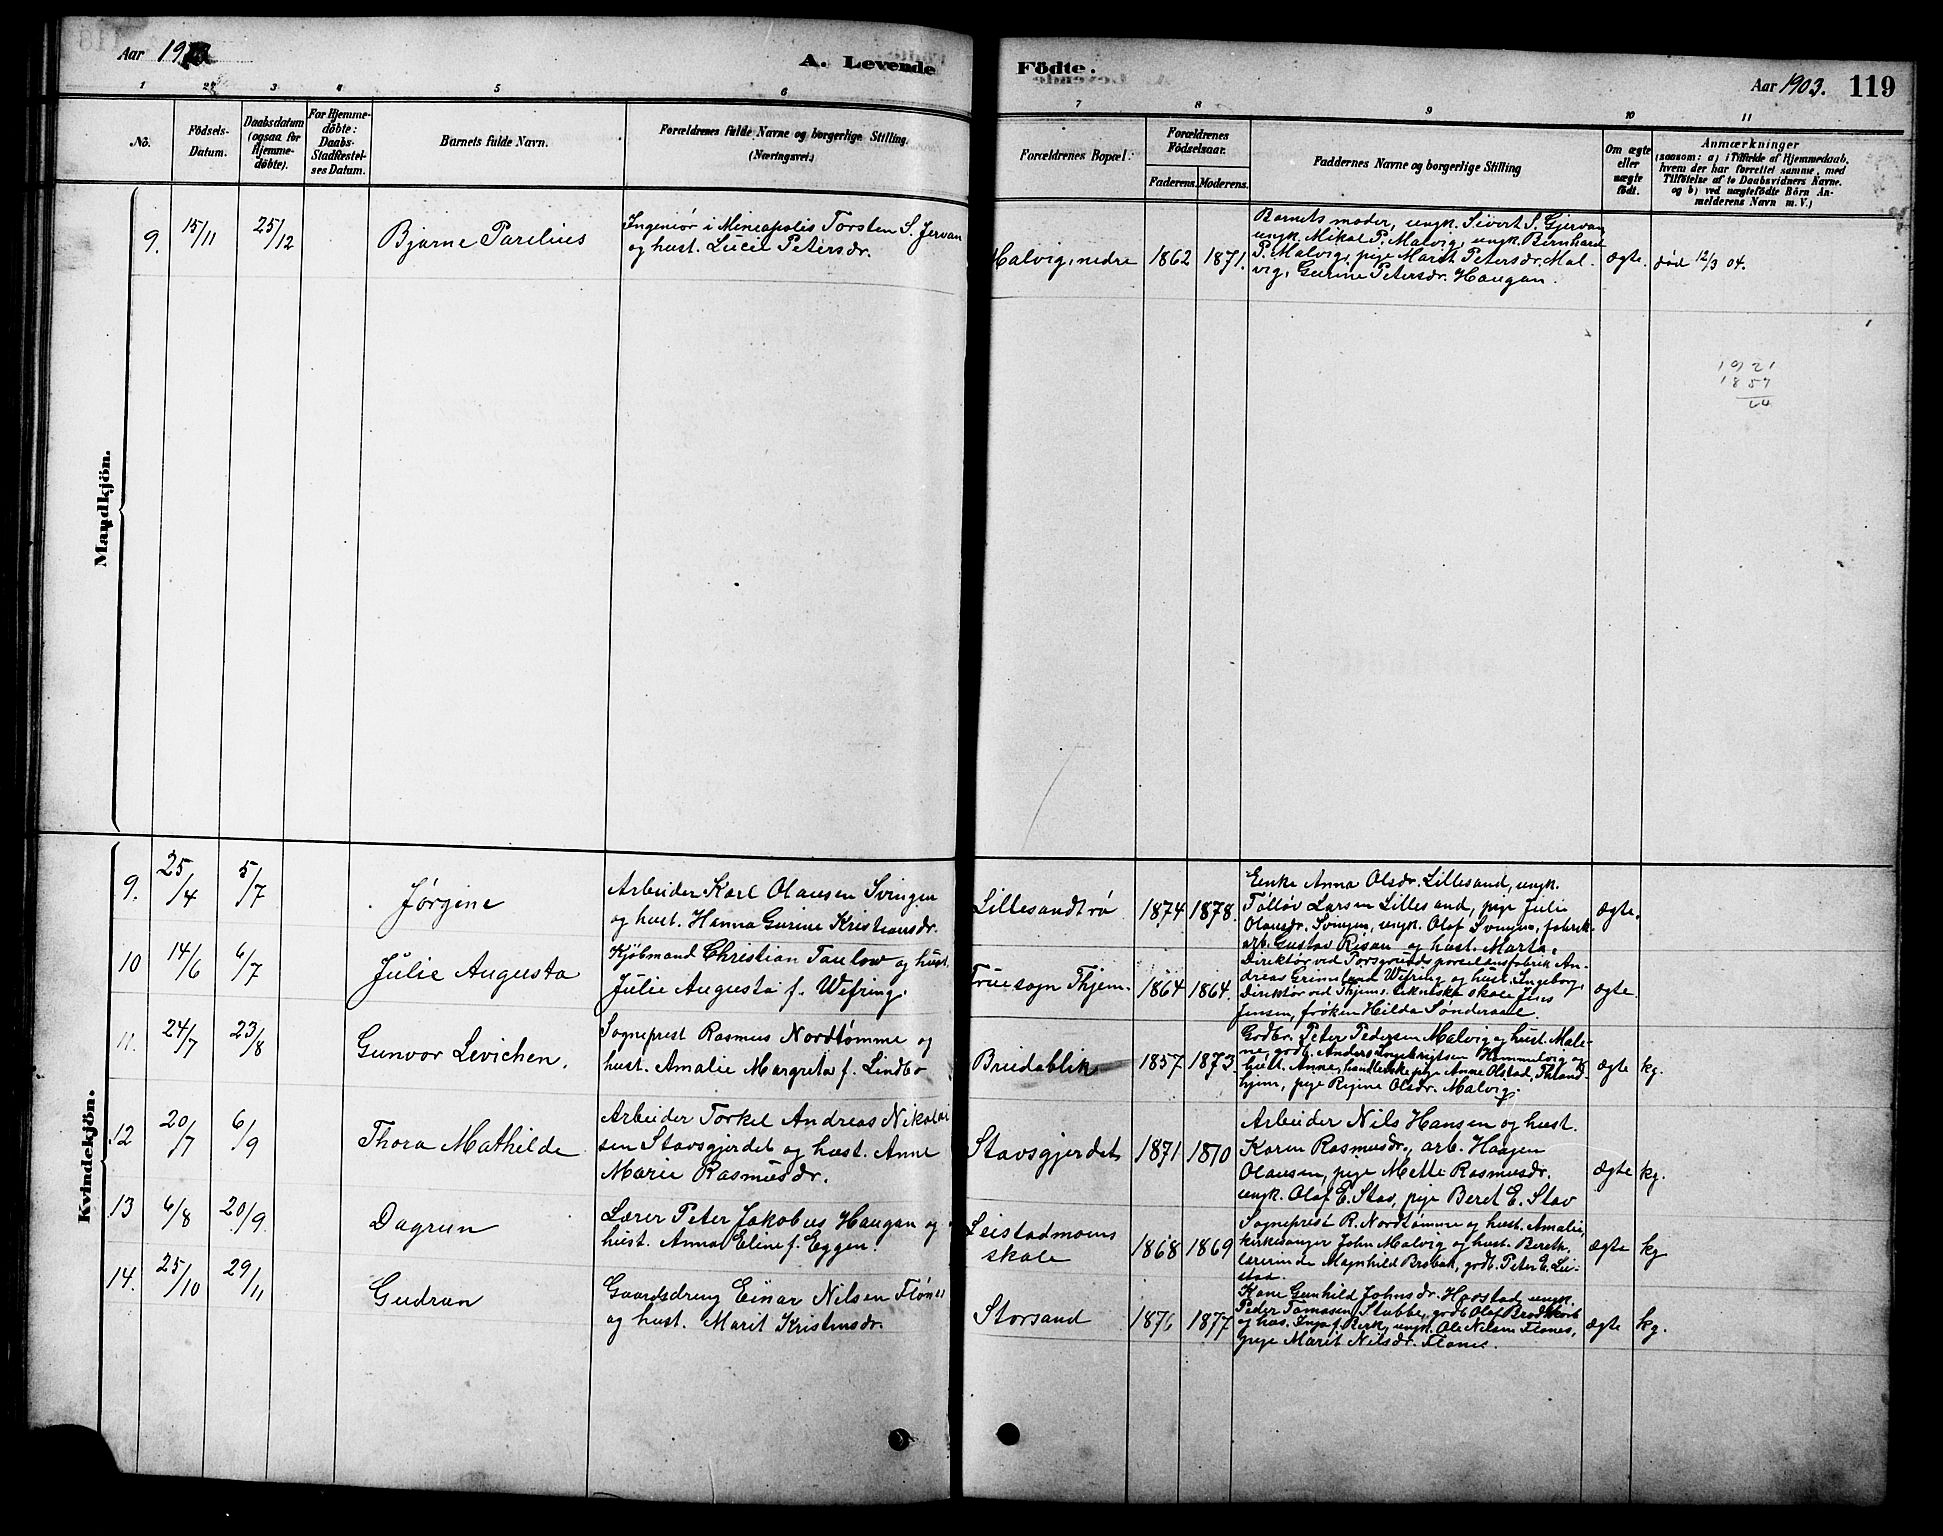 Aar 1903
A. Levende
Födte.
Aar 1903. 119
1 2 3 4 5 6 7 8 9 10 11
No.
Födsels-
Datum.
Daabsdatum
(ogsaa for
Hjemme-
döbte).
For Hjemme-
döbte:
Daabs-
Stadfæstel-
ses Datum.
Barnets fulde Navn.
Forældrenes fulde Navne og borgerlige Stilling.
(Næringsvei.)
Forældrenes Bopæl.
Forældrenes
Födselsaar.
Faderens. Moderens.
Faddernes Navne og borgerlige Stilling
Om ægte
eller
uægte
födt.
Anmærkninger
(saasom: a) i Tilfælde af Hjemmedaab,
hvem der har forrettet samme, med
Tilföielse af to Daabsvidners Navne.
og b) ved uægtefödte Börn An-
melderens Navn m. V.)
Mandkjön.
9. 15/11 25/12
Bjarne Parelius
Ingeniør i Mineapolis Torsten S. Jervan
og hust. Lucie Petersdr.
Malvig, nedre
1862 1871.
Barnets moder, ungk. Sivert S. Gjervan
ungk. Mikal P. Malvig, ungk. Bernhard
P. Malvig, pige Marit Petersdr. Mal-
vig, Gurine Petersdr. Haugan.
ægte. død 12/3 04.
1921
1857
Kvindekjön.
9. 25/4 5/7
Jørgine
Arbeider Karl Olausen Svingen
og hust. Hanna Gurine Kristiansdr.
Lillesandtrø
1874 1878.
Enke Anna Olsdr. Lillesand, ungk.
Tølløv Larsen Lillesand, pige Julie
Olausdr. Svingen, ungk. Olaf Svingen, fabrik-
arb. Gustav Risan og hust. Marta.
ægte.
10 14/6 6/7
Julie Augusta
Kjøbmand Christian Taulow og hust.
Julie Augusta f. Wefring.
Fruesogn Thjem.
1864 1864.
Direktør ved Porsgrunds porselænsfabrik An-
dreas Grimelund Wefring og hust. Ingeborg,
Direktør ved Thjems tekniske skole Jens
Jensen, frøken Hilda Sønderaal.
ægte
11. 24/7 23/8
Gunvor Levichen.
Sogneprest Rasmus Nordtømme og
hust. Amalie Margreta f. Lindbo
Breidablik
1857 1873.
Gbdbr. Peter Pedersen Malvig og hust. Male-
ne, gdb. Anders Ingebrigtsen Hommelvig og
hust. Anne, pige Anne Olstad, Thrond-
hjem, pige Regine Olsdr. Malvig.
ægte kg.
12 20/7 6/9
Thora Mathilde
Arbeider Torkel Andreas Nikolai
sen Stavsgjerdet og hust. Anne
Marie Rasmusdr.
Stavsgjerdet
1871 1870
Arbeider Nils Hansen og hust.
Karen Rasmusdr., arb. Haagen
Olausen, pige Mette Rasmusdr.
ungk. Olaf E. Stav, pige Beret E. Stav
ægte kg.
13 6/8 20/9.
Dagrun
Lærer Peter Jakobus Haugan og
hust. Anna Eline f. Eggen.
Leistadmoens
skole
1868 1869
Sogneprest R. Nordtømme og hust. Amalie,
kirkesanger John Malvig og hust. Bereth,
lærerinde Magnhild Brobak, gdb. Peter E. Lei-
stad.
ægte kg
14. 25/10 29/11
Gudrun
Gaardsdreng Einar Nilsen Flønes
og hust. Marit Kristensdr.
Storsand
1876 1877
Kone Gunhild Johnsdr. Hoostad, ungk.
Peder Tomassen Stubbe, gdb. Olaf Brodtkorb
og hus. Inga f. Berk, ungk. Ole Nilsen Flønes,
pige Marit Nilsdr. Flønes.
ægte kg.